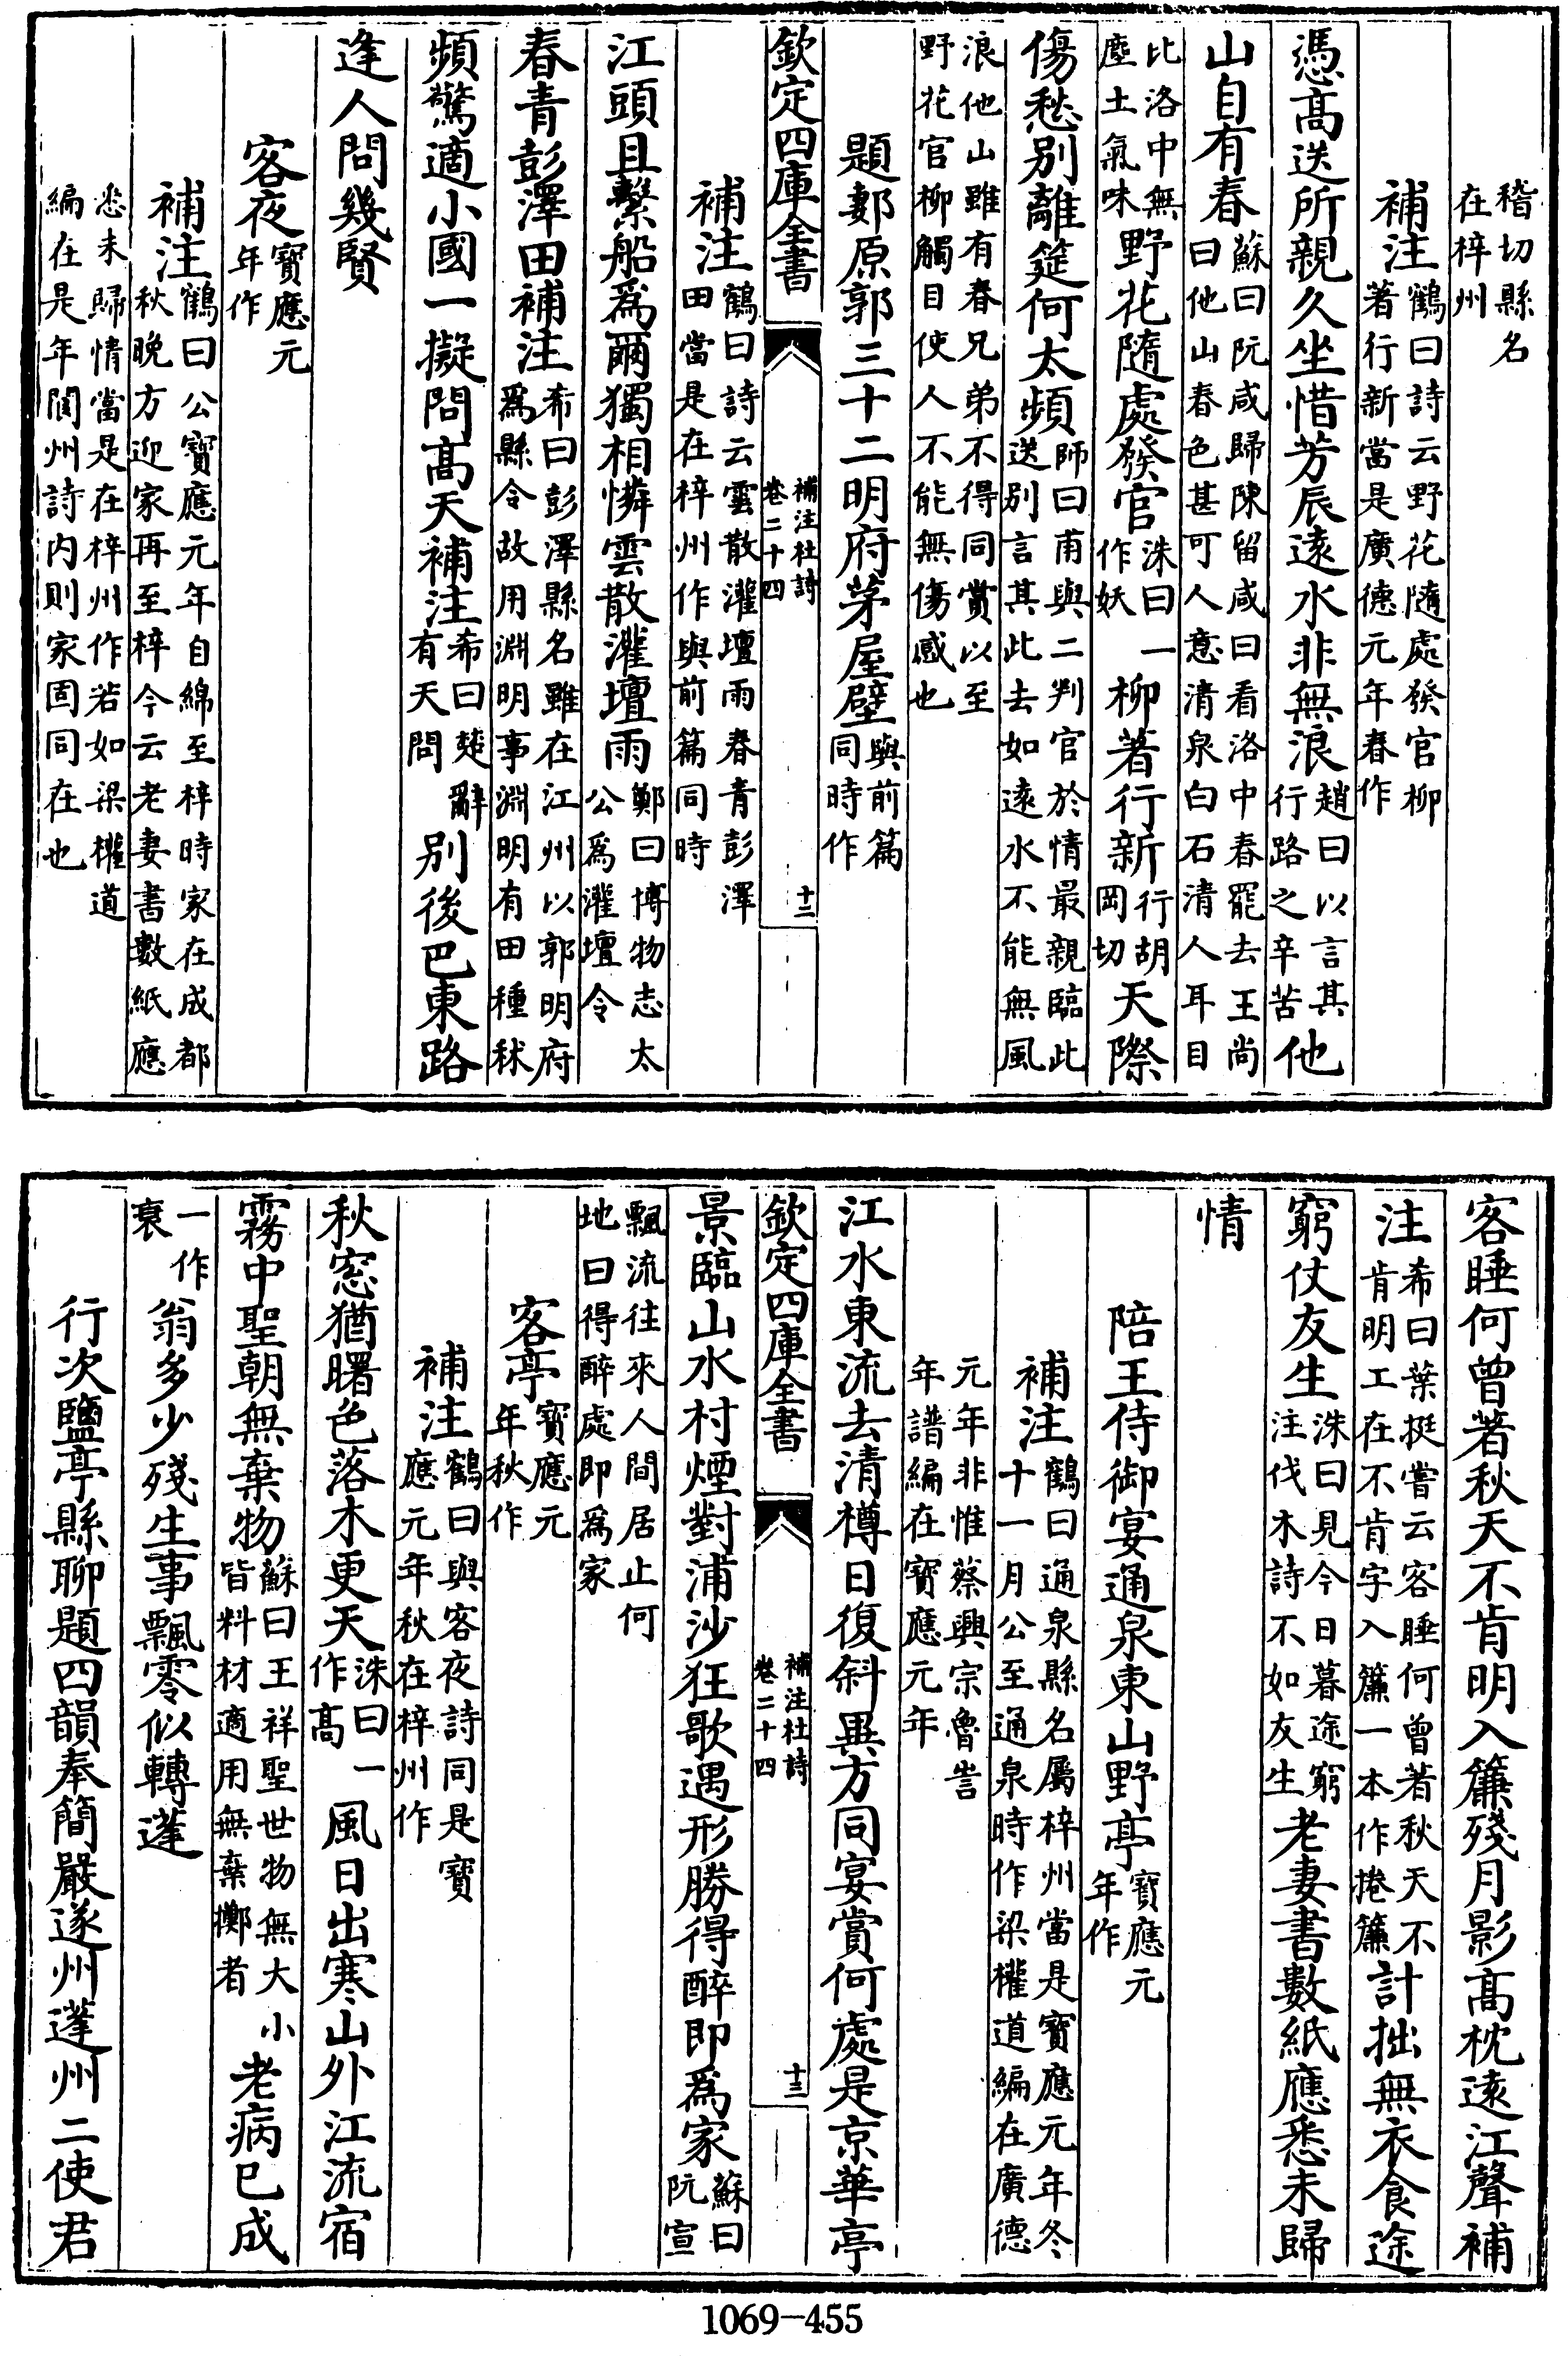 稽切縣名
在梓州
補注鶴曰詩云野花隨處發官柳
著行新當是廣德元年春作
憑高送所親久坐惜芳辰逺水非無浪趙曰以言其
行路之辛苦他
山自有春蘇曰阮咸歸陳留咸曰看洛中春罷去王尚
曰他山春色甚可人意清泉白石清人耳目
比洛中無
塵土氣味野花隨處發官洙曰一
作妖柳著行新行胡
岡切天際
傷愁别離筵何太頻師曰甫與二判官於情最親臨此
送别言其此去如逺水不能無風
浪他山雖有春兄弟不得同賞以至
野花官柳觸目使人不能無傷感也
題郪原郭三十二明府茅屋壁與前篇
同時作
欽定四庫全書
補注杜詩
卷二十四
十二
補注鶴曰詩云雲散灌壇雨春青彭澤
田當是在梓州作與前篇同時
江頭且繫船為爾獨相憐雲散灌壇雨鄭曰博物志太
公為灌壇令
春青彭澤田補注希曰彭澤縣名雖在江州以郭明府
為縣令故用淵明事淵明有田種秫
頻驚適小國一擬問高天補注希曰楚辭
有天問别後巴東路
逢人問幾賢
客夜寶應元
年作
補注鶴曰公寶應元年自綿至梓時家在成都
秋晚方迎家再至梓今云老妻書數紙應
悉未歸情當是在梓州作若如梁權道
編在是年閬州詩内則家固同在也
客睡何曾著秋天不肯明入簾殘月影高枕逺江聲補
注希曰葉挺嘗云客睡何曾著秋天不
肯明工在不肯字入簾一本作捲簾計拙無衣食途
窮仗友生洙曰見今日暮途窮
注伐木詩不如友生老妻書數紙應悉未歸
情
陪王侍御宴通泉東山野亭寶應元
年作
補注鶴曰通泉縣名屬梓州當是寶應元年冬
十一月公至通泉時作梁權道編在廣德
元年非惟蔡興宗魯訔
年譜編在寶應元年
江水東流去清樽日復斜異方同宴賞何處是京華亭
欽定四庫全書
補注杜詩
卷二十四
十三
景臨山水村煙對浦沙狂歌遇形勝得醉即為家蘇曰
阮宣
飄流往來人間居止何
地曰得醉處即為家
客亭寶應元
年秋作
補注鶴曰與客夜詩同是寶
應元年秋在梓州作
秋窓猶曙色落木更天洙曰一
作高風日出寒山外江流宿
霧中聖朝無棄物蘇曰王祥聖世物無大小
皆料材適用無棄擲者老病已成
一作
衰翁多少殘生事飄零似轉蓬
行次鹽亭縣聊題四韻奉簡嚴遂州蓬州二使君
1069-455